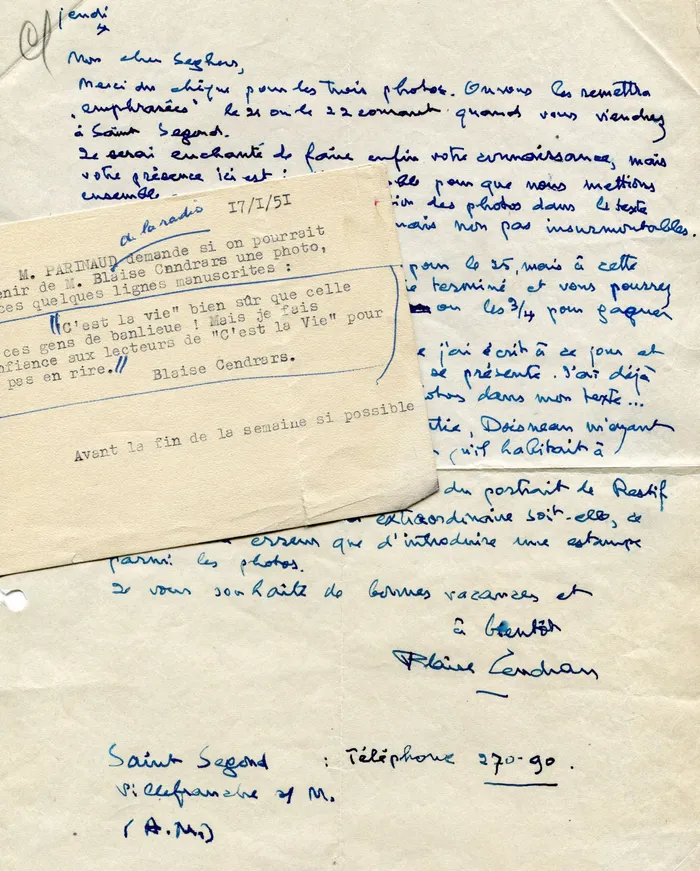 jeudi
Mon cher Seghers,
Merci du chèque pour les trois photos. On vous les remettra
"emphrasées" le 21 ou le 22 courant quand vous viendrez
à Saint Segond.
Je serai enchanté de faire enfin votre connaissance, mais
votre présence ici est
ble pour que nous mettions
ensemble
tion des photos dans le texte
mais non pas insurmontables.
pour le 25, mais à cette
terminé et vous pourrez
ou les 3/4 pour gagner
j'ai écrit à ce jour et
se présente. J'ai déjà
otos dans mon texte...
Doisneau m'ayant
qu'il habitait à
du portrait de Restif
extraordinaire soit-elle, ce
erreur que d'introduire une estampe
parmi les photos.
Je vous souhaite de bonnes vacances et
à bientôt
Blaise Cendrars
Saint Segond : Téléphone 270-90.
Villefranche s/ M.
(A.M.)
17/I/51
de la radio
M. PARINAUD demande si on pourrait
enir de M. Blaise Cnndrars une photo,
ces quelques lignes manuscrites :
"C'est la vie" bien sûr que celle
ces gens de banlieue ! Mais je fais
nfiance aux lecteurs de "C'est la Vie" pour
pas en rire."
Blaise Cendrars.
Avant la fin de la semaine si possible